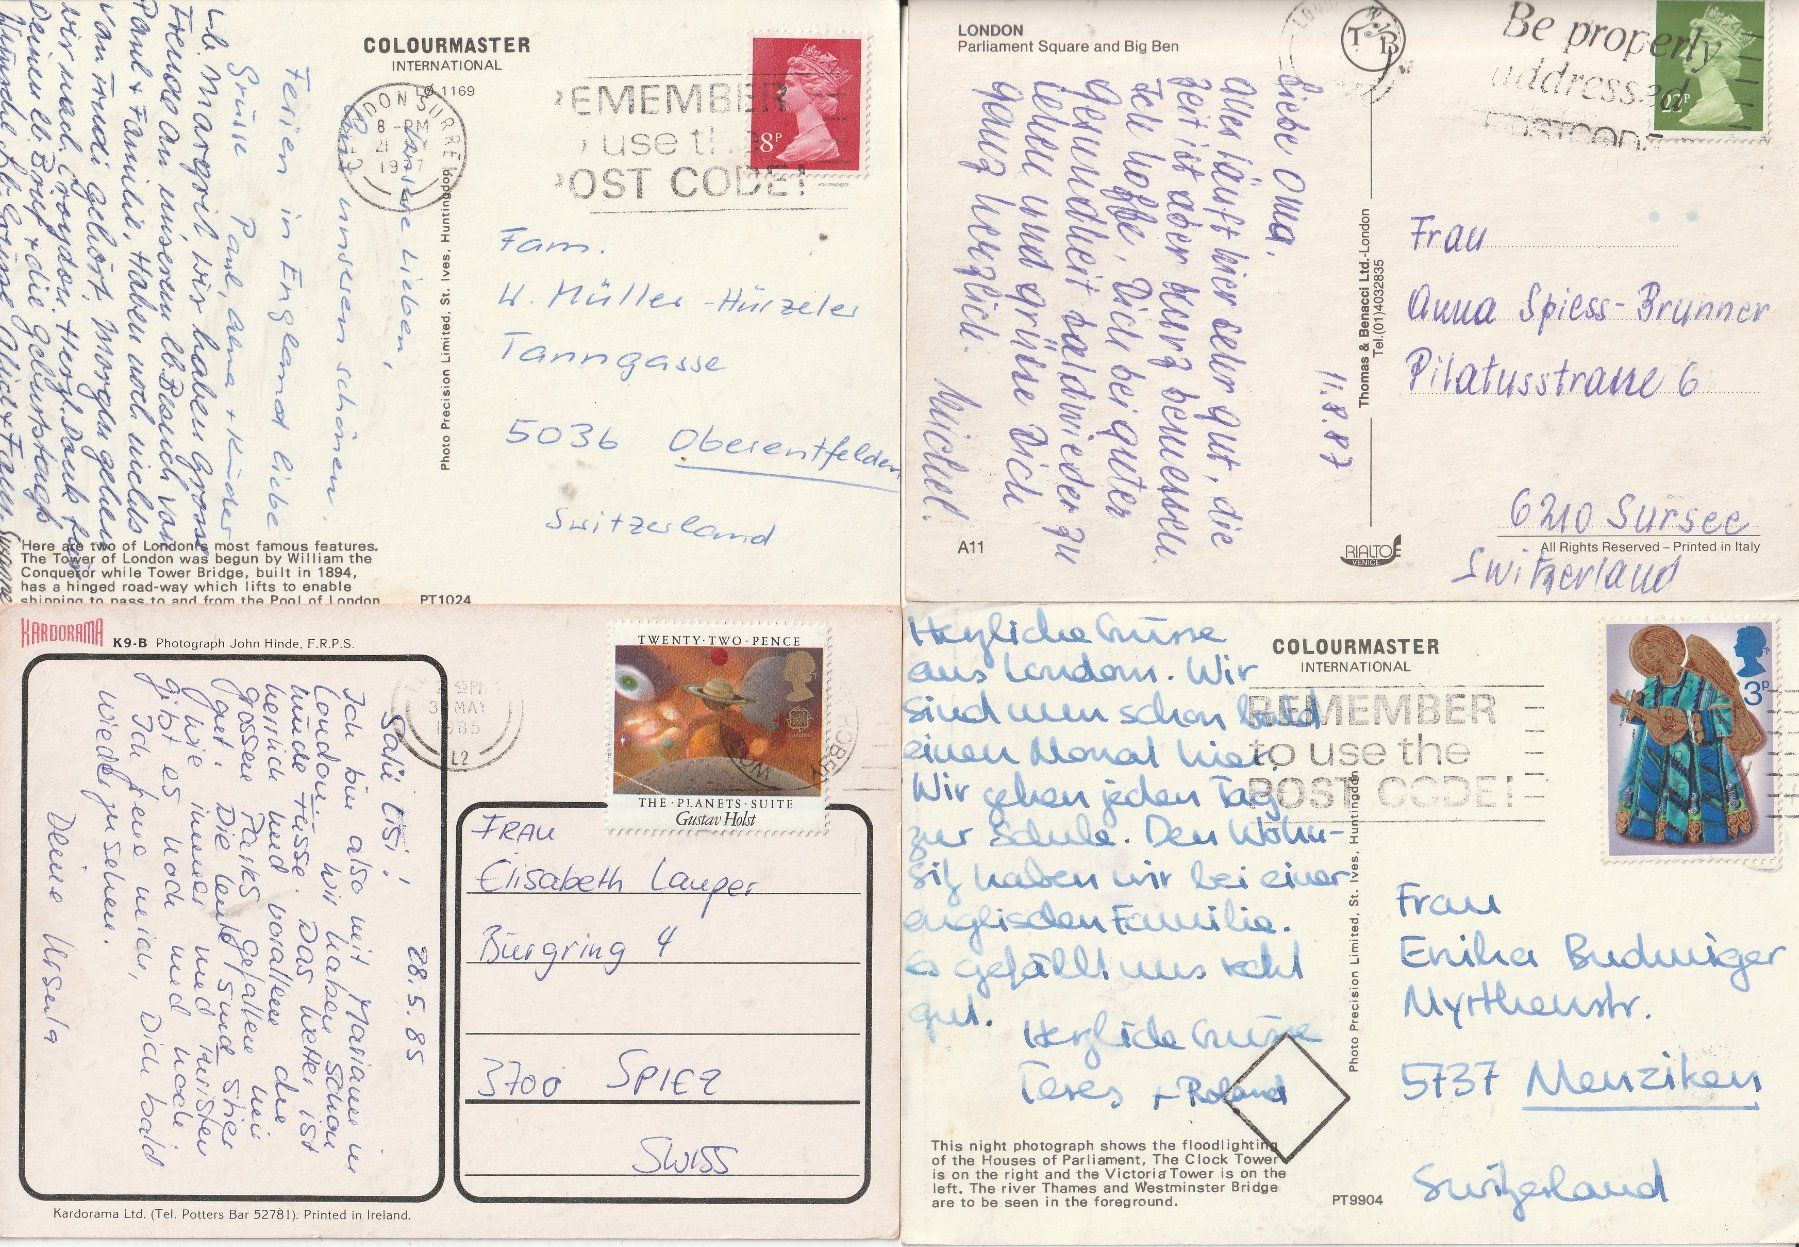 COLOURMASTER
INTERNATIONAL
1169
LONDON SURREY
8 - PM
21
1977
REMEMBER
to use the
POST CODE!
8P
Photo Precision Limited, St. Ives, Huntingdon
Meine Lieben,
unseren schönen
Ferien in England liebe
Grüsse Paul, + Kinder
Lb. Margrit wir haben Grosse
Freude an unserem lb. Besuch von
Paul + Familie, Haben noch nichts
von Trudi gehört. Morgen gehen
wir nach Croydon. Herzl. Dank für
Deinen lb. Brief + die Geburtstags
Wünsche
Fam.
W. Müller-Hürzeler
Tanngasse
5036 Oberentfelden
Switzerland
Here are two of London's most famous features.
The Tower of London was begun by William the
Conqueror while Tower Bridge, built in 1894,
has a hinged road-way which lifts to enable
shipping to pass to and from the Pool of London
PT1024
LONDON
Parliament Square and Big Ben
TB
Be properly
addressed
POSTCODE
11.8.87
Liebe Oma,
alles läuft hier sehr gut, die
Zeit ist aber kurz bemessen.
Ich hoffe, Dich bei guter
Gesundheit bald wieder zu
sehen und grüsse Dich
ganz herzlich.
Michel.
Thomas & Benacci Ltd.-London
Tel.(01)4032835
Frau
Anna Spiess-Brunner
Pilatusstrasse 6
6210 Sursee
Switzerland
A11
RIALTO
VENICE
All Rights Reserved – Printed in Italy
KARDORAMA
K9-B Photograph John Hinde, F.R.P.S.
MAY
1985
L2
TWENTY·TWO·PENCE
THE·PLANETS·SUITE
Gustav Holst
28.5.85
Salü Lisi!
Ich bin also mit Mariann in
London. Wir haben schon
müde Füsse. Das Wetter ist
herrlich und vorallem die
grossen Parks gefallen mir
gut. Die Leute sind stier
wie immer und Turisten
gibt es noch und noch
Ich freue mich, Dich bald
wiederzusehen.
Deine Ursula
FRAU
Elisabeth Lauper
Bürgring 4
3700 SPIEZ
SWISS
Kardorama Ltd. (Tel. Potters Bar 52781). Printed in Ireland.
COLOURMASTER
INTERNATIONAL
REMEMBER
to use the
POST CODE!
3P
Herzliche Grüsse
aus London. Wir
sind nun schon bald
einen Monat hier.
Wir gehen jeden Tag
zur Schule. Den Wohn-
sitz haben wir bei einer
englischen Familie.
Es gefällt uns recht
gut.
Herzliche Grüsse
Teres + Roland
Photo Precision Limited, St. Ives, Huntingdon
Frau
Erika Budmiger
Myrthenstr.
5737 Menziken
Switzerland
This night photograph shows the floodlighting
of the Houses of Parliament, The Clock Tower
is on the right and the Victoria Tower is on the
left. The river Thames and Westminster Bridge
are to be seen in the foreground.
PT9904